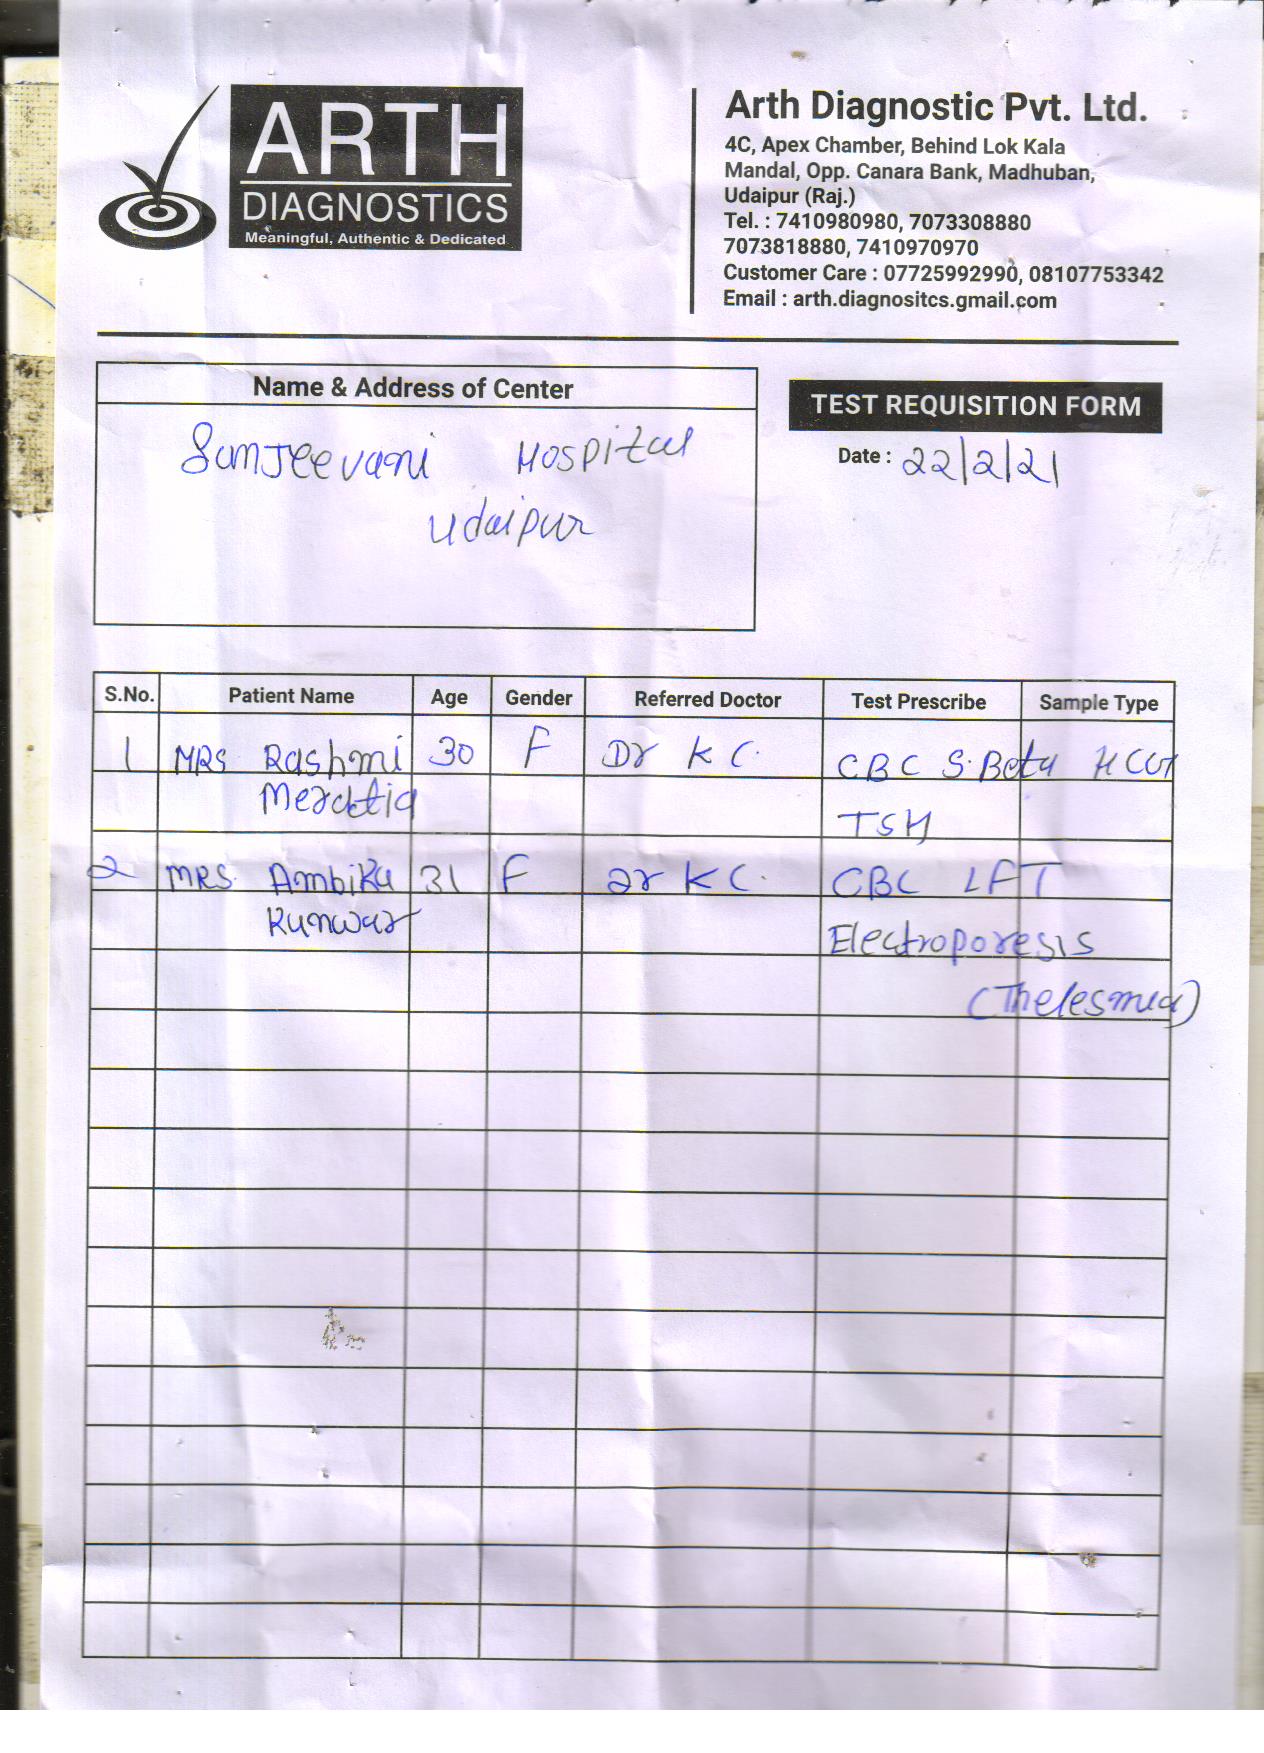 ARTH
DIAGNOSTICS
Meaningful, Authentic & Dedicated
Arth Diagnostic Pvt. Ltd.
4C, Apex Chamber, Behind Lok Kala
Mandal, Opp. Canara Bank, Madhuban,
Udaipur (Raj.)
Tel. : 7410980980, 7073308880
7073818880, 7410970970
Customer Care : 07725992990, 08107753342
Email : arth.diagnositcs.gmail.com
Name & Address of Center
Sanjeevani Hospital
Udaipur
TEST REQUISITION FORM
Date : 22/2/21
S.No. Patient Name Age Gender Referred Doctor Test Prescribe Sample Type
1 MRS Rashmi 30 F Dr K C. CBC S.Beta HCG
Merdtia
TSH
2 MRS. Ambika 31 F Dr K C. CBC LFT
Kunwar Electroporesis
(Thelesmia)